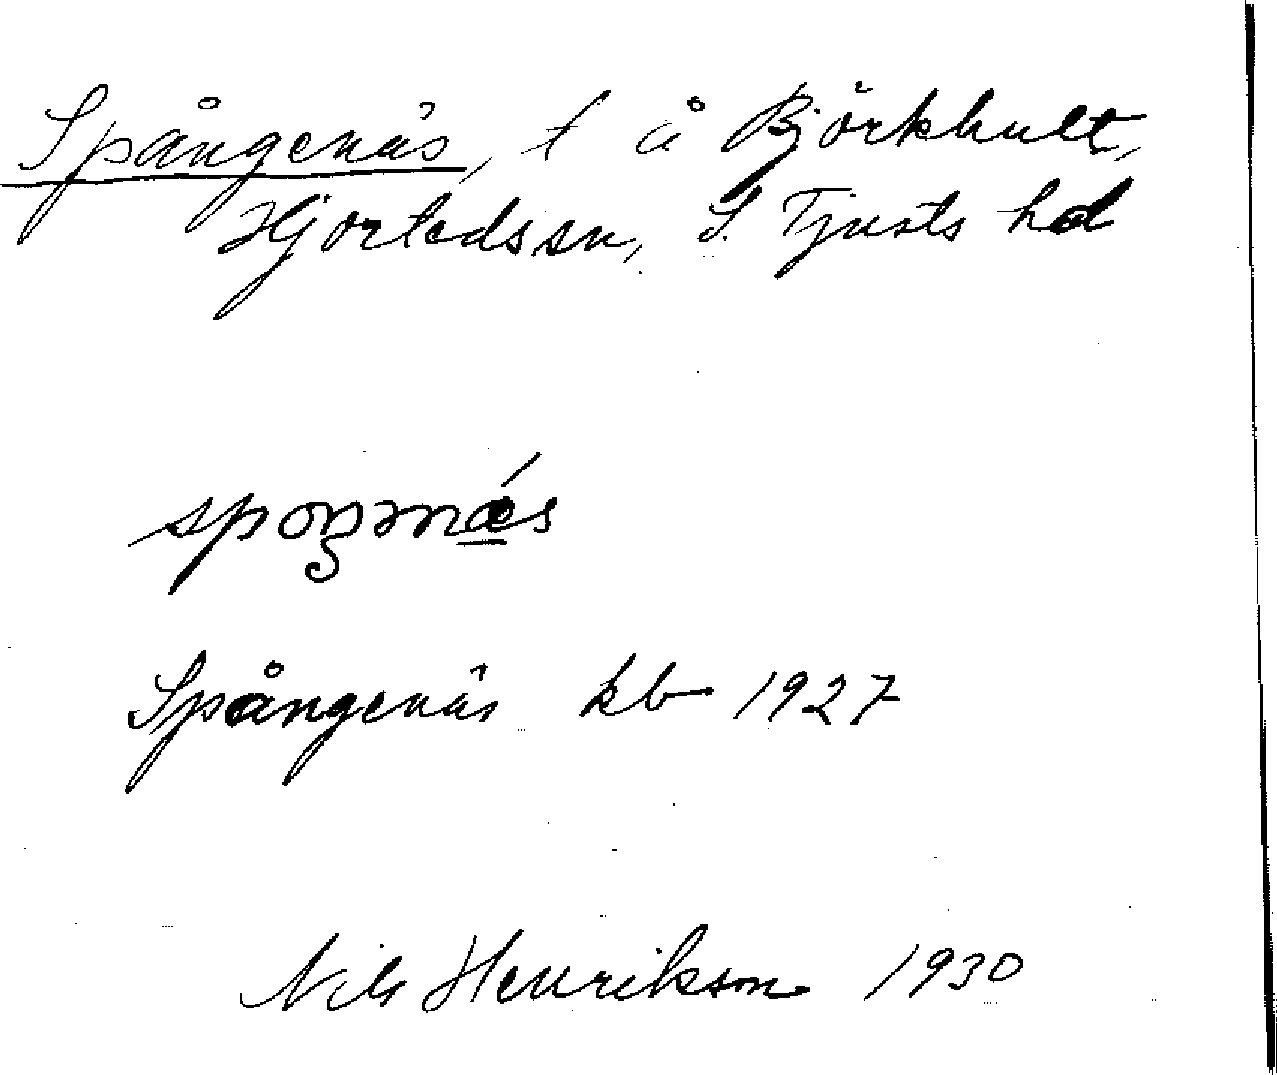 Spångenäs, t å Björkhult,
Hjorteds sn, S. Tjusts hd
spoŋənæ´s
Spångenäs kb 1927
Nils Henrikson 1930